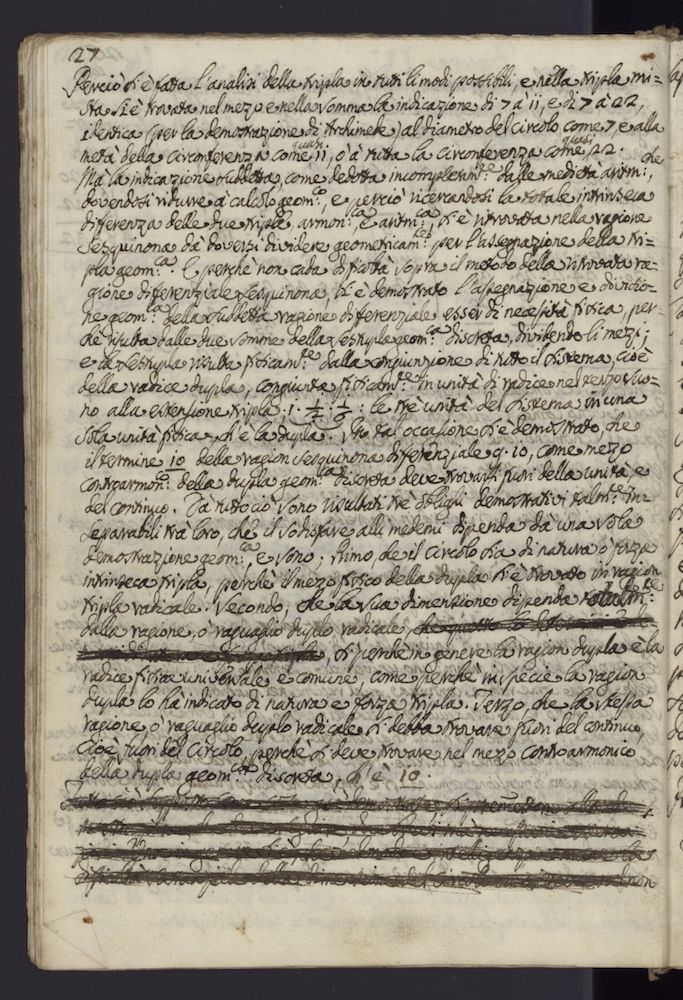 27
Perciò si è fatta l'analisi della tripla in tutti li modi possibili, e nella tripla mi=
sta si è trovata nel mezo e nella somma la indicazione di 7 a 11, e di 7 a 22,
identica (per la demostrazione di Archimede) al diametro del circolo come 7, e alla
metà della circonferenza come quasi 11, o a tutta la circonferenza come quasi 22.
Ma la indicazione suddetta, come dedotta incompletam:te dalle medietà aritm:, che
dovendosi ridurre a calcolo geom:co, e perciò ricercandosi la totale intrinseca
differenza delle due triple armon:ca e aritm:ca, si è ritrovata nella ragione
sesquinona da doversi dividere geometricam:te per l'assegnazione della tri=
pla geom:ca. E perchè non cada difficoltà sopra il metodo della ritrovata ra=
gione differenziale sesquinona, si è demostrato l'assegnazione e divisio=
ne geom:ca della suddetta ragione differenziale esser di necessità fisica, per=
chè risulta dalle due somme della sestupla geom:ca discreta, dividendo li mezi;
e la sestupla risulta fisicam:te dalla congiunzione di tutto il sistema, cioè
della radice dupla, congiunta fisicam:te in unità di radice nel terzo suo=
no alla estensione tripla 1. 1/2. 1/3: le trè unità del sistema in una
sola unità fisica, ch'è la dupla. In tal occasione si è demostrato, che
il termine 10 della ragion sesquinona differenziale 9. 10, come mezo
contrarmon:co della dupla geom:ca discreta deve trovarsi fuori della unità, e
del continuo. Da tutto ciò sono risultati trè obligli demostrativi talm:te in=
separabili trà loro, che il sodisfare alli medemi dipenda da una sola
demostrazione geom:ca, e sono. Primo, che il Circolo sia di natura o forza
intrinseca tripla, perchè il mezo fisico della dupla si è trovato in ragion
tripla radicale. Secondo, che la sua dimensione dipenda totalm:te
dalla ragione, o raguaglio duplo radicale,
, si perchè in genere la ragion dupla è la
radice fisica universale e comune, come perchè in specie la ragion
dupla lo ha indicato di natura e forza tripla. Terzo, che la stessa
ragione, o raguaglio duplo radicale si debba trovare fuori del continuo,
cioè fuori del Circolo, perchè si deve trovare nel mezo contrarmonico
della dupla geom:ca discreta, ch'è 10.